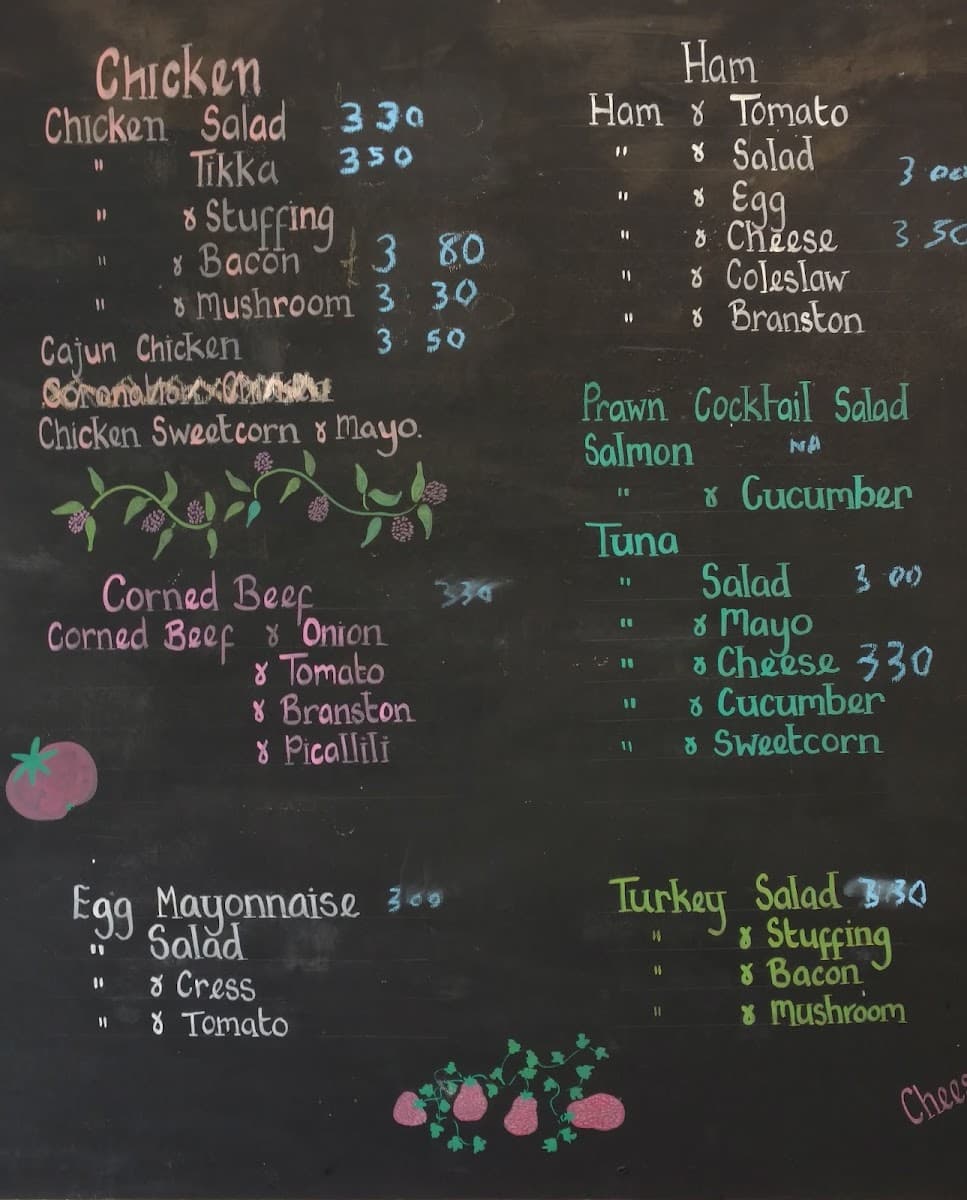 Chicken
Chicken Salad 3 30
" Tikka 3 50
" & Stuffing
" & Bacon £ 3 80
" & Mushroom 3 30
Cajun Chicken 3 50
Chicken Sweetcorn & Mayo.
Corned Beef 330
Corned Beef & Onion
& Tomato
& Branston
& Picallili
Egg Mayonnaise 300
" Salad
" & Cress
" & Tomato
Ham
Ham & Tomato
" & Salad 3 00
" & Egg
" & Cheese 3 50
" & Coleslaw
" & Branston
Prawn Cocktail Salad
Salmon NA
" & Cucumber
Tuna
" Salad 3 00
" & Mayo
" & Cheese 330
" & Cucumber
" & Sweetcorn
Turkey Salad 330
" & Stuffing
" & Bacon
" & Mushroom